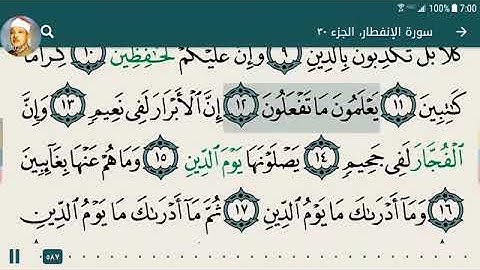 100% 7:00
سورة الإنفطار، الجزء ٣٠
كَلَّا بَلْ تُكَذِّبُونَ بِالدِّينِ ٩ وَإِنَّ عَلَيْكُمْ لَحَٰفِظِينَ ١٠ كِرَامًا
كَٰتِبِينَ ١١ يَعْلَمُونَ مَا تَفْعَلُونَ ١٢ إِنَّ الْأَبْرَارَ لَفِى نَعِيمٍ ١٣ وَإِنَّ
الْفُجَّارَ لَفِى جَحِيمٍ ١٤ يَصْلَوْنَهَا يَوْمَ الدِّينِ ١٥ وَمَا هُمْ عَنْهَا بِغَآئِبِينَ
١٦ وَمَآ أَدْرَىٰكَ مَا يَوْمُ الدِّينِ ١٧ ثُمَّ مَآ أَدْرَىٰكَ مَا يَوْمُ الدِّينِ
٥٨٧